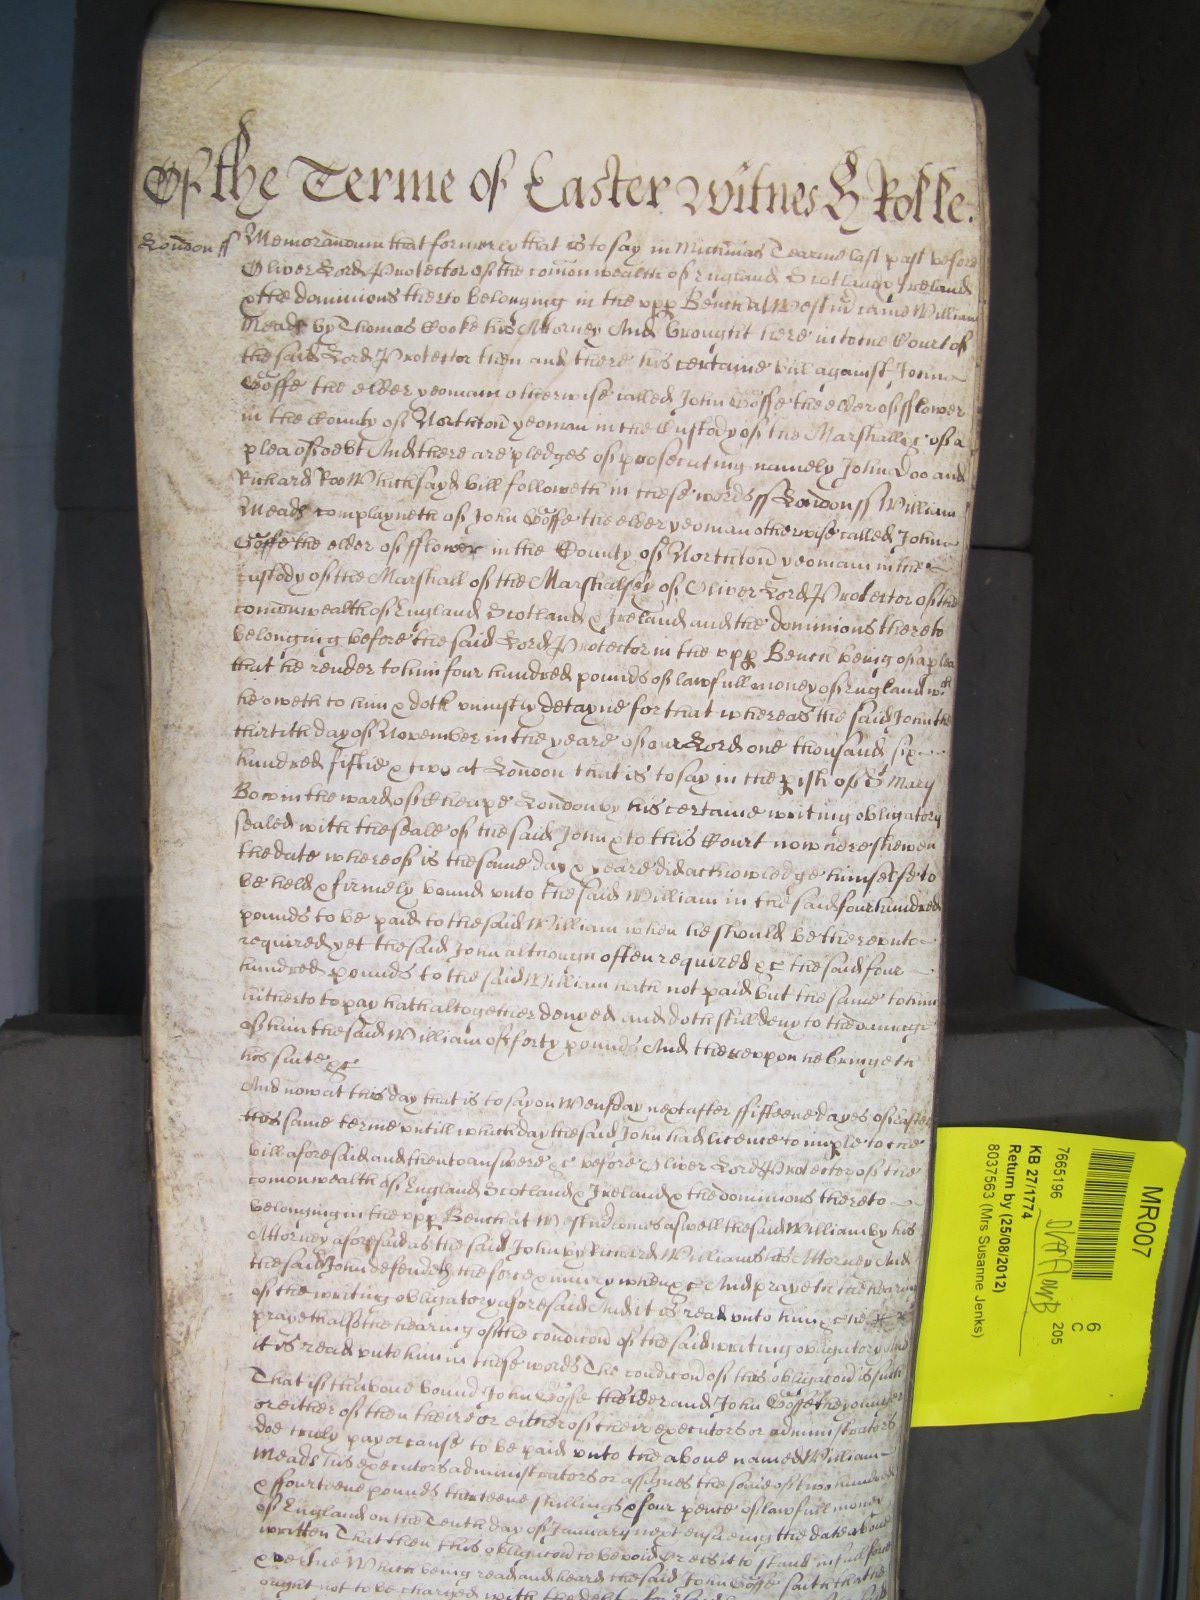 Of the Terme of Easter Witnes H Rolle.
London ss Memorandum that formerly that is to say in Michmas Tearme last past before
Oliver Lord Protector of the comonwealth of England Scotland & Ireland
& the dominions therto belonging in the upp Bench at Westmr came William
Meads by Thomas Cooke his Attorney And brought here into the Court of
the said Lord Protector then and there his certaine bill against John
Goffe the elder yeoman otherwise called John Goffe the elder of fflower
in the County of Northton yeoman in the Custody of the Marshall &c of a
plea of debt And there are pledges of prosecuting namely John Doo and
Richard Roo Which sayd bill followeth in these words ss London ss William
Meads complayneth of John Goffe the elder yeoman otherwise called John
Goffe the elder of fflower in the County of Northton yeoman in the
custody of the Marshall of the Marshalsey of Oliver Lord Protector of the
comonwealth of England Scotland & Ireland and the dominions thereto
belonging before the said Lord Protector in the upp Bench being of a plea
that he render to him four hundred pounds of lawfull money of England wch
he oweth to him & doth uniustly detayne for that whereas the said John the
thirtith day of November in the yeare of our Lord one thousand six
hundred fiftie & two at London that is to say in the pish of St Mary
Bow in the ward of Cheape London by his certaine writing obligatory
sealed with the seale of the said John & to this Court now here shewen
the date whereof is the same day & yeare did acknowledge himselfe to
be held & firmely bound unto the said William in the said four hundred
pounds to be paid to the said William when he should be thereunto
required yet the said John although often required &c the said four
hundred pounds to the said William hath not paid but the same to him
hitherto to pay hath altogether denyed and doth still deny to the damage
of him the said William of forty pounds And thereuppon he bringeth
his suite &c
And now at this day that is to say on Wensday next after ffifteene dayes of Easter
this same terme untill which day the said John had licence to imple to the
bill aforesaid and then to answere &c before Oliver Lord Protector of the
comonwealth of England Scotland & Ireland & the dominions thereto
belonging in the upp Bench at Westmr comes aswell the said William by his
Attorney aforesaid as the said John by Richard Williams his Attorney And
the said John defendeth the force & iniury when &c And prayeth the hearing
of the writing obligatory aforesaid And it is read unto him &c he
prayeth also the hearing of the condicon of the said writing obligatory And
it is read unto him in these words The condicon of this obligacon is such
That if the above bound John Goffe the elder and John Goffe the younger
or either of them their or either of their executors or administrators
doe truly pay or cause to be paid unto the above named William
Meads his executors administrators or assignes the some of two hundred
& ffourteene pounds thirteene shillings & four pence of lawfull money
of England on the Tenth day of January next ensueing the date above
written That then this obligacon to be void or els it to stand in full force
& vertue Which being read and heard the said John Goffe saith that he
ought not to be charged with the debt
MR007
7665196
205
6
C
KB 27/1774
Return by (25/08/2012)
8037563 (Mrs Susanne Jenks)